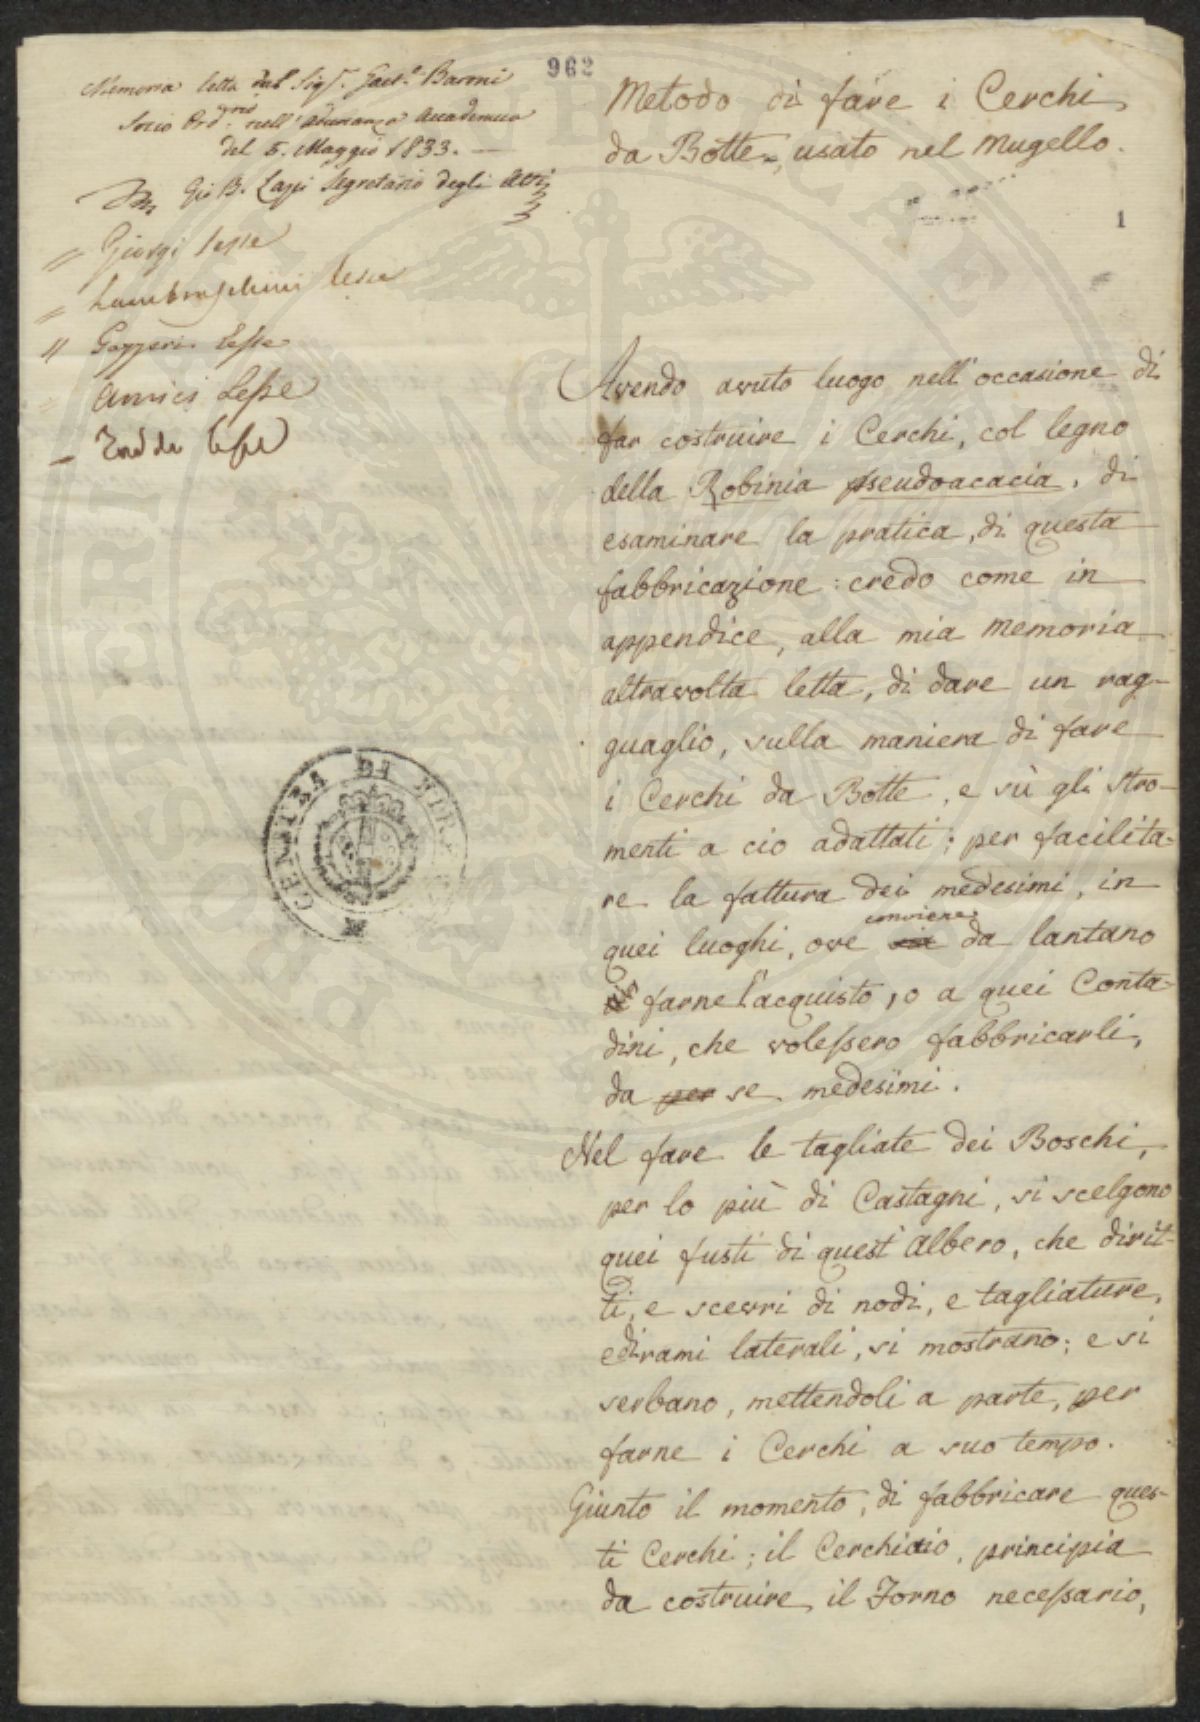 962
Memoria letta dal Sig.r Gaet.o Baroni
Socio Ord.rio nell'Adunanza Accademica
del 5. Maggio 1833. —
Gio B. Lapi Segretario degli Atti
" Giorgi lesse
" Lambruschini lesse
" Gazzeri. Lesse
" Amici Lesse
Lesse
Metodo di fare i Cerchi
da Botte, usato nel Mugello.
1
Avendo avuto luogo nell'occasione di
far costruire i Cerchi, col legno
della Robinia pseudoacacia, di
esaminare la pratica, di questa
fabbricazione: credo come in
appendice, alla mia memoria
altravolta letta, di dare un rag-
guaglio, sulla maniera di fare
i Cerchi da Botte, e sù gli stro-
menti a cio adattati; per facilita-
re la fattura dei medesimi, in
quei luoghi, ove conviene da lantano
farne l'acquisto, o a quei Conta-
dini, che volessero fabbricarli,
da per se medesimi.
Nel fare le tagliate dei Boschi,
per lo più di Castagni, si scelgono
quei fusti di quest'Albero, che dirit-
ti, e scevri di nodi, e tagliature,
e di rami laterali, si mostrano; e si
serbano, mettendoli a parte, per
farne i Cerchi a suo tempo.
Giunto il momento, di fabbricare ques-
ti Cerchi; il Cerchiaio, principia
da costruire il Forno necessario,